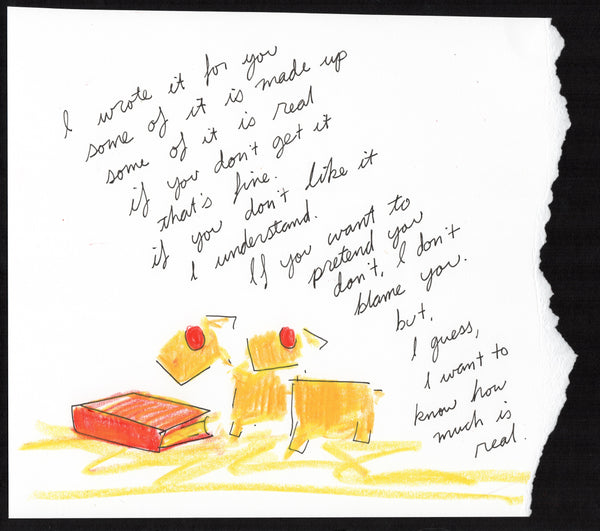 I wrote it for you
some of it is made up
some of it is real
if you don't get it
that's fine.
if you don't like it
I understand.
If you want to
pretend you
don't, I don't
blame you.
but,
I guess,
I want to
know how
much is
real.